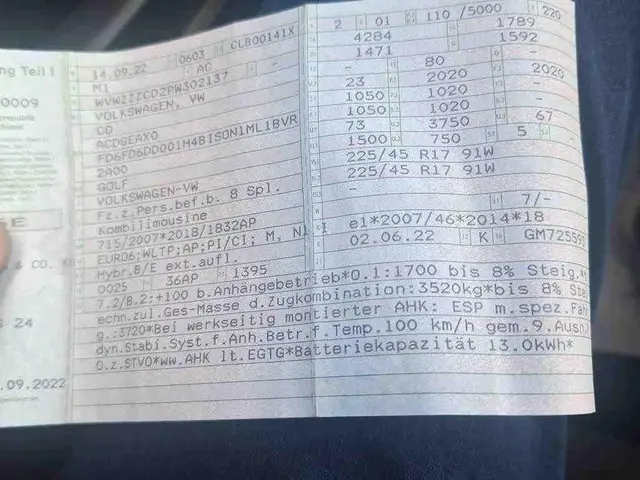 ng Teil I
14.09.22 0603 CLB00141X
M1 AC -
WVWZZZCD2PW302137
VOLKSWAGEN, VW
CD
ACDGEAX0
FD6FD6DD001H4BISON1ML1BVR
2A00
GOLF
VOLKSWAGEN-VW
Fz.z.Pers.bef.b. 8 Spl.
Kombilimousine
715/2007*2018/1832AP
EURO6;WLTP;AP;PI/CI; M, N1 I
Hybr.B/E ext.aufl.
0025 36AP 1395
2 01 110 /5000 220
4284 1789
1471 1592
- 80 -
23 2020 2020
1050 1020 -
1050 1020 -
73 3750 67
1500 750 5 -
225/45 R17 91W
225/45 R17 91W
-
7/-
e1*2007/46*2014*18
02.06.22 K GM725591
7.2/8.2:+100 b.Anhängebetrieb*O.1:1700 bis 8% Steig.*
echn.zul.Ges-Masse d.Zugkombination:3520kg*bis 8% Ste
g.:3720*Bei werkseitig montierter AHK: ESP m.spez.Fah
dyn.Stabi.Syst.f.Anh.Betr.f.Temp.100 km/h gem.9.Ausn
O.z.STVO*ww.AHK lt.EGTG*Batteriekapazität 13.0kWh*
0009
E
& CO. K
S 24
.09.2022